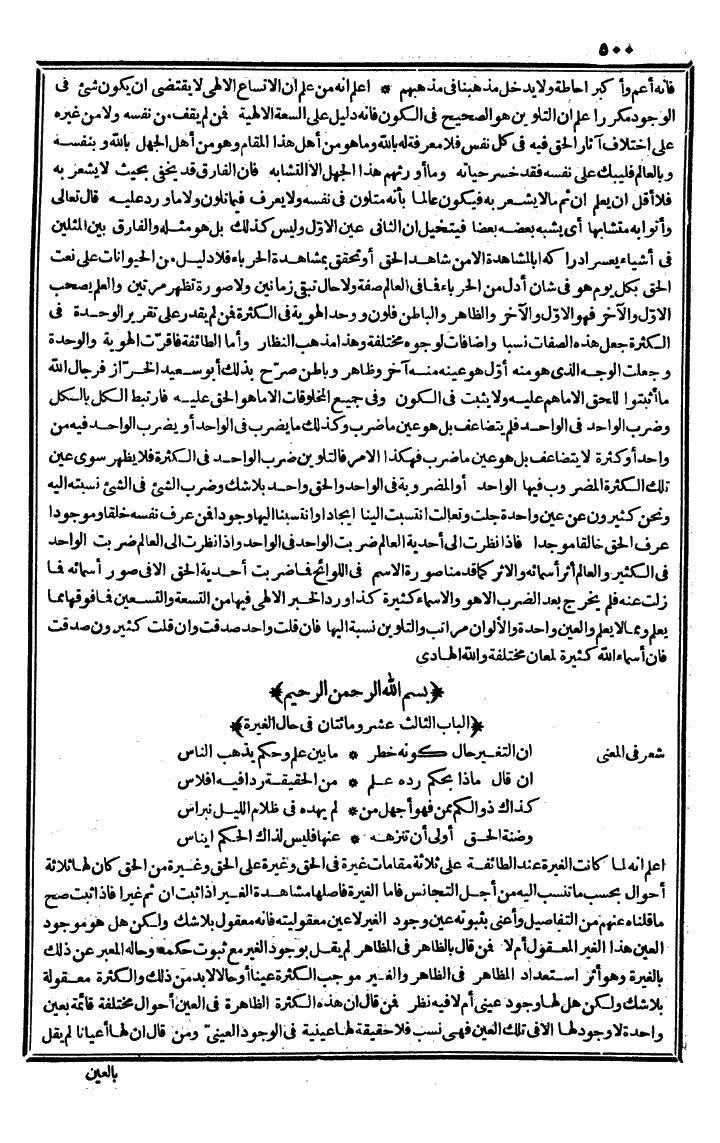 ٥٠٠
فانه أعم وأكبر احاطة ولا يدخل مذهبنا فى مذهبهم * اعلم انه من علم ان الاتساع الالهى لا يقتضى ان يكون شئ فى
الوجود مكررا علم ان التلوين هو الصحيح فى الكون فانه دليل على السعة الالهية فن لم يقف من نفسه ولا من غيره
على اختلاف آثار الحق فيه فى كل نفس فلا معرفة له بالله وما هو من أهل هذا المقام وهو من أهل الجهل بالله و بنفسه
و بالعالم فليبك على نفسه فقد خسر حياته وما أورثهم هذا الجهل الا التشابه فان الفارق قد يخفى بحيث لا يشعر به
فلا أقل ان يعلم ان ثم ما لا يشعر به فيكون عالما بأنه متلون فى نفسه ولا يعرف فيما تلون ولا ما ورد عليه قال تعالى
وأتوا به متشابها أى يشبه بعضه بعضا فيتخيل ان الثانى عين الاول وليس كذلك بل هو مثله والفارق بين المثلين
فى أشياء يعسر ادراكه بالمشاهدة الا من شاهد الحق أو تحقق بمشاهدة الحرباء فلا دليل من الحيوانات على نعت
الحق بكل يوم هو فى شان أدل من الحرباء فما فى العالم صفة ولا حال تبقى زمانين ولا صورة تظهر مرتين والعلم يصحب
الاول والآخر فهو الاول والآخر والظاهر والباطن فلون و وحد الهوية فى الكثرة فن لم يقدر على تقرير الوحدة فى
الكثرة جعل هذه الصفات نسبا واضافات لوجوه مختلفة وهذا مذهب النظار وأما الطائفة فأقرّت الهوية والوحدة
و جعلت الوجه الذى هو منه أول هو عينه منه آخر وظاهر وباطن صرّح بذلك أبو سعيد الخرّاز فرجال الله
ما أثبتوا للحق الا ما هم عليه ولا يثبت فى الكون وفى جميع المخلوقات الا ما هو الحق عليه فارتبط الكل بالكل
وضرب الواحد فى الواحد فلم يتضاعف بل هو عين ما ضرب وكذلك ما يضرب فى الواحد أو يضرب الواحد فيه من
واحد أو كثرة لا يتضاعف بل هو عين ما ضرب فهكذا الامر فالتلوين ضرب الواحد فى الكثرة فلا يظهر سوى عين
تلك الكثرة المضروب فيها الواحد أو المضروبة فى الواحد والحق واحد بلا شك وضرب الشئ فى الشئ نسبته اليه
ونحن كثيرون عن عين واحدة جلت وتعالت انتسبت الينا ايجادا وانتسبنا اليها وجودا فن عرف نفسه خلقا وموجودا
عرف الحق خالقا موجدا فاذا نظرت الى أحدية العالم ضربت الواحد فى الواحد واذا نظرت الى العالم ضربت الواحد
فى الكثير والعالم أثر أسمائه والاثر كما قدمنا صورة الاسم فى اللوائح فما ضربت أحدية الحق الا فى صور أسمائه فما
زلت عنه فلم يخرج بعد الضرب الا هو والاسماء كثيرة كذا ورد الخبر الالهى فيها من التسعة والتسعين فما فوقها مما
يعلم ومما لا يعلم والعين واحدة والألوان مراتب والتلوين نسبة اليها فان قلت واحد صدقت وان قلت كثيرون صدقت
فان أسماء الله كثيرة لمعان مختلفة والله الهادى
﴿بسم الله الرحمن الرحيم﴾
﴿الباب الثالث عشر ومائتان فى حال الغيرة﴾
شعر فى المعنى ان التغير حال كونه خطر * ما بين علم وحكم يذهب الناس
ان قال ماذا بحكم رده علم * من الحقيقة ردا فيه افلاس
كذاك ذو الحكم من فهو أجهل من * لم يهده فى ظلام الليل نبراس
وضنة الحق أولى أن تنزهه * عنها فليس لذاك الحكم ايناس
اعلم انه لما كانت الغيرة عند الطائفة على ثلاثة مقامات غيرة فى الحق وغيرة على الحق وغيرة من الحق كان لها ثلاثة
أحوال بحسب ما تنسب اليه من أجل التجانس فاما الغيرة فاصلها مشاهدة الغير اذا ثبت ان ثم غيرا فاذا ثبت صح
ما قلناه عنهم من التفاصيل وأعنى بثبوته عين وجود الغير لا عين معقوليته فانه معقول بلا شك ولكن هل هو موجود
العين هذا الغير المعقول أم لا فن قال بالظاهر فى المظاهر لم يقل بوجود الغير مع ثبوت حكمه وحاله المعبر عن ذلك
بالغيرة وهو أثر استعداد المظاهر فى الظاهر والغير موجب الكثرة عينا أو حالا لابد من ذلك والكثرة معقولة
بلا شك ولكن هل لها وجود عينى أم لا فيه نظر فن قال ان هذه الكثرة الظاهرة فى العين أحوال مختلفة قائمة بعين
واحدة لا وجود لها الا فى تلك العين فهى نسب فلا حقيقة لها عينية فى الوجود العينىّ ومن قال ان لها أعيانا لم يقل
بالعين